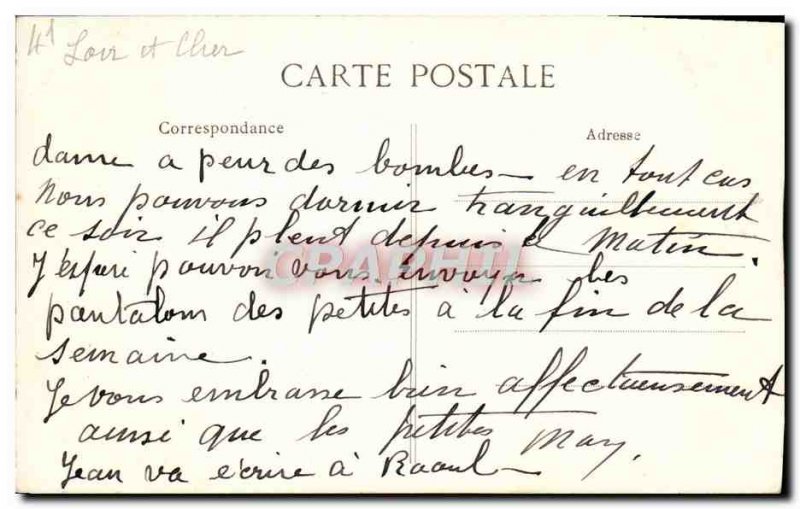 41
Loir et Cher
CARTE POSTALE
Correspondance
Adresse
dame a peur des bombes – en tout cas
nous pouvons dormir tranquillement
ce soir il pleut depuis le Matin.
J'espère pouvoir vous envoyer les
pantalons des petites à la fin de la
semaine.
Je vous embrasse bien affectueusement
ainsi que les petites May.
Jean va écrire à Raoul –
CPAPHIL